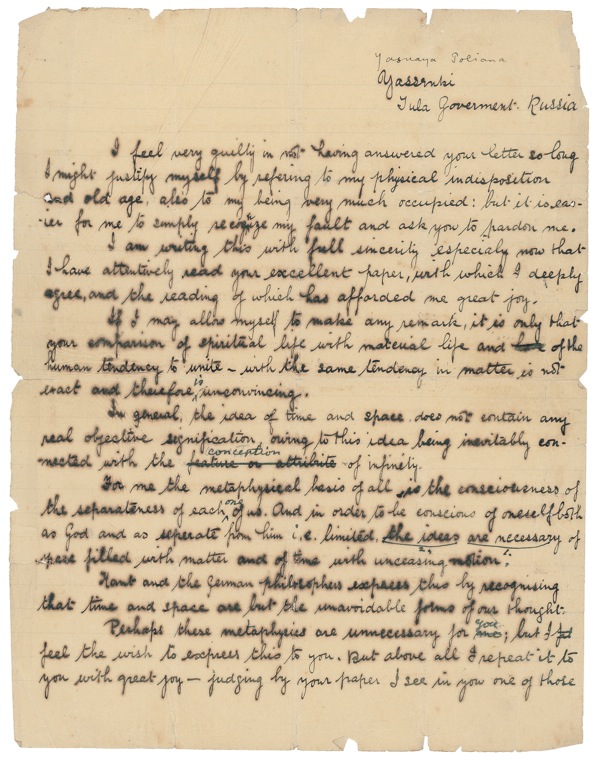 Yasnaya Poliana
Yassenki
Tula Goverment. Russia
I feel very guilty in not having answered your letter so long
I might justify myself by refering to my physical indisposition
and old age, also to my being very much occupied: but it is eas-
ier for me to simply recognize my fault and ask you to pardon me.
I am writing this with full sincerity especialy now that
I have attentively read your excellent paper, with which I deeply
agree, and the reading of which has afforded me great joy.
If I may allow myself to make any remark, it is only that
your comparison of spiritual life with material life and of the
human tendency to unite – with the same tendency in matter, is not
exact and therefore is unconvincing.
In general, the idea of time and space does not contain any
real objective signification, owing to this idea being inevitably con-
nected with the feature or attribute conception of infinity.
For me the metaphysical basis of all is the consciousness of
the separateness of each one of us. And in order to be conscious of oneself both
as God and as seperate from him i.e. limited, the ideas are necessary of
space filled with matter and of time with unceasing motion.
Kant and the German philosophers express this by recognising
that time and space are but the unavoidable forms of our thought.
Perhaps these metaphysics are unnecessary for you; but I
feel the wish to express this to you. But above all I repeat it to
you with great joy – judging by your paper I see in you one of those